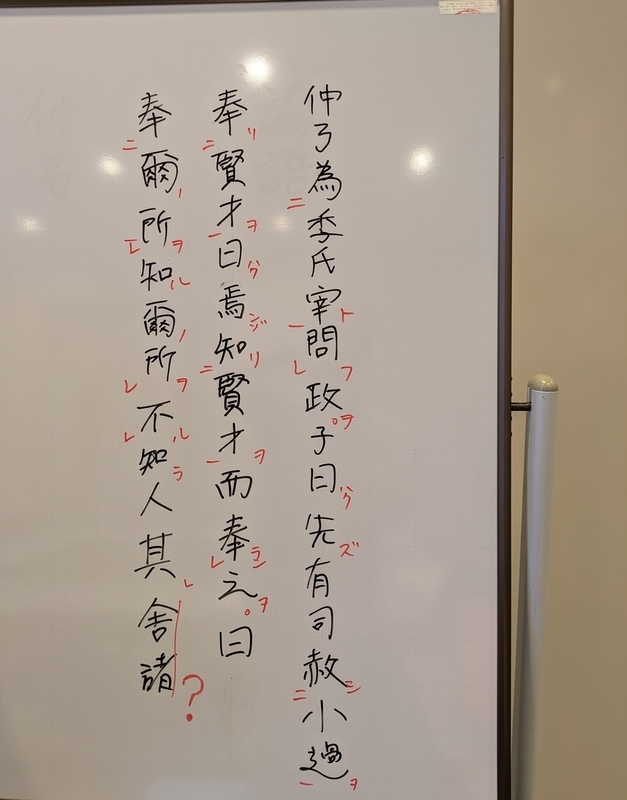 仲弓為季氏宰問政子曰先有司赦小過
奉賢才曰焉知賢才而奉之曰
奉爾所知爾所不知人其舍諸?